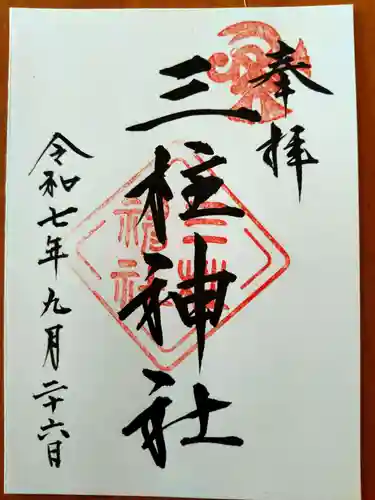 奉拝
三柱神社
三柱
神社
令和七年九月二十六日